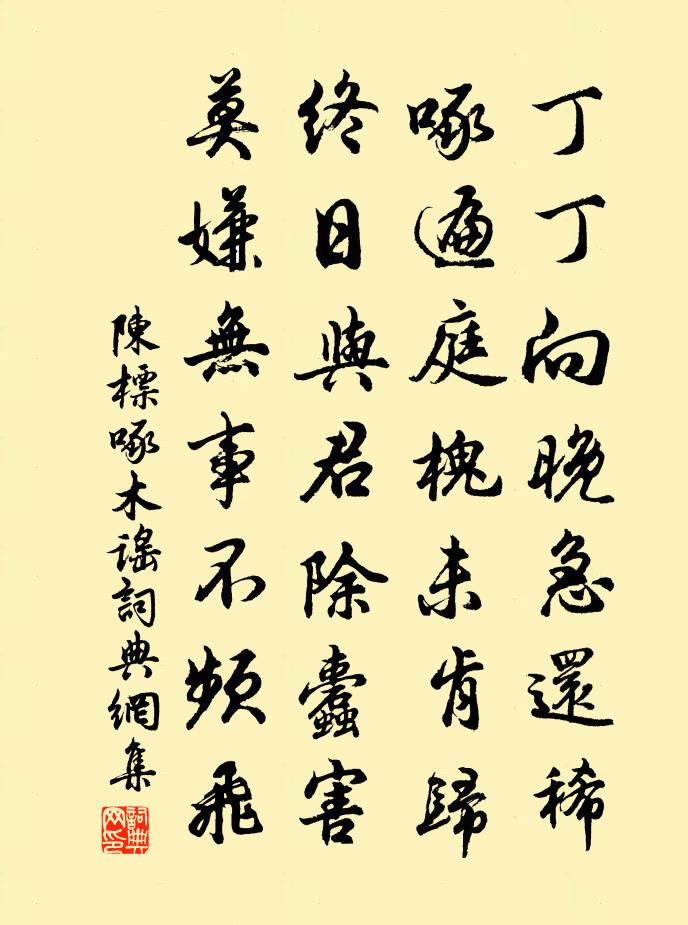 丁丁向晚急還稀
啄遍庭槐未肯歸
終日與君除蠹害
莫嫌無事不頻飛
陳標啄木謠詞典網集
詞典网印